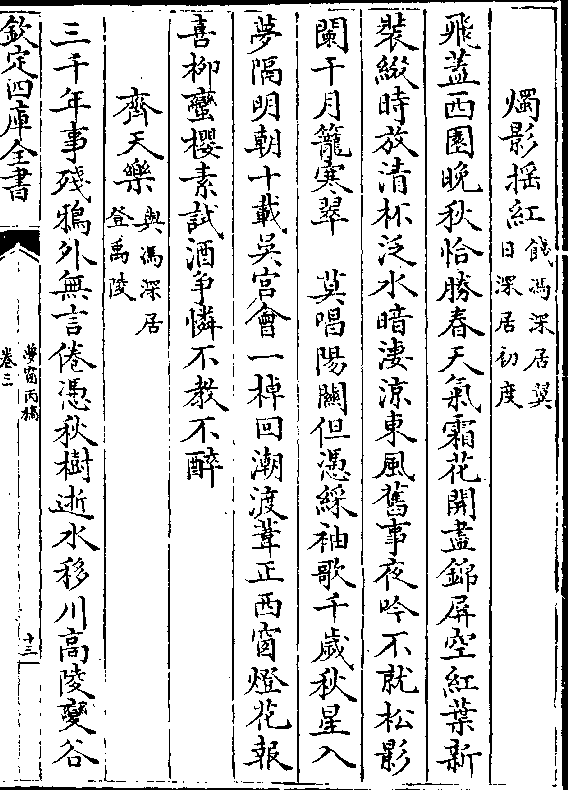 燭影揺紅餞馮深居翼
日深居初度
飛蓋西園晚秋恰勝春天氣霜花開盡錦屏空紅葉新
裝綴時放清杯泛水暗淒涼東風舊事夜吟不就松影
闌干月籠寒翠　莫唱陽關但憑綵袖歌千歳秋星入
夢隔明朝十載吳宫會一棹回潮渡葦正西窗燈花報
喜柳蠻櫻素試酒争憐不教不醉
齊天樂與馮深居
登禹陵
三千年事殘鴉外無言倦憑秋樹逝水移川髙陵變谷
欽定四庫全書
夢窗丙稿
卷三
十三